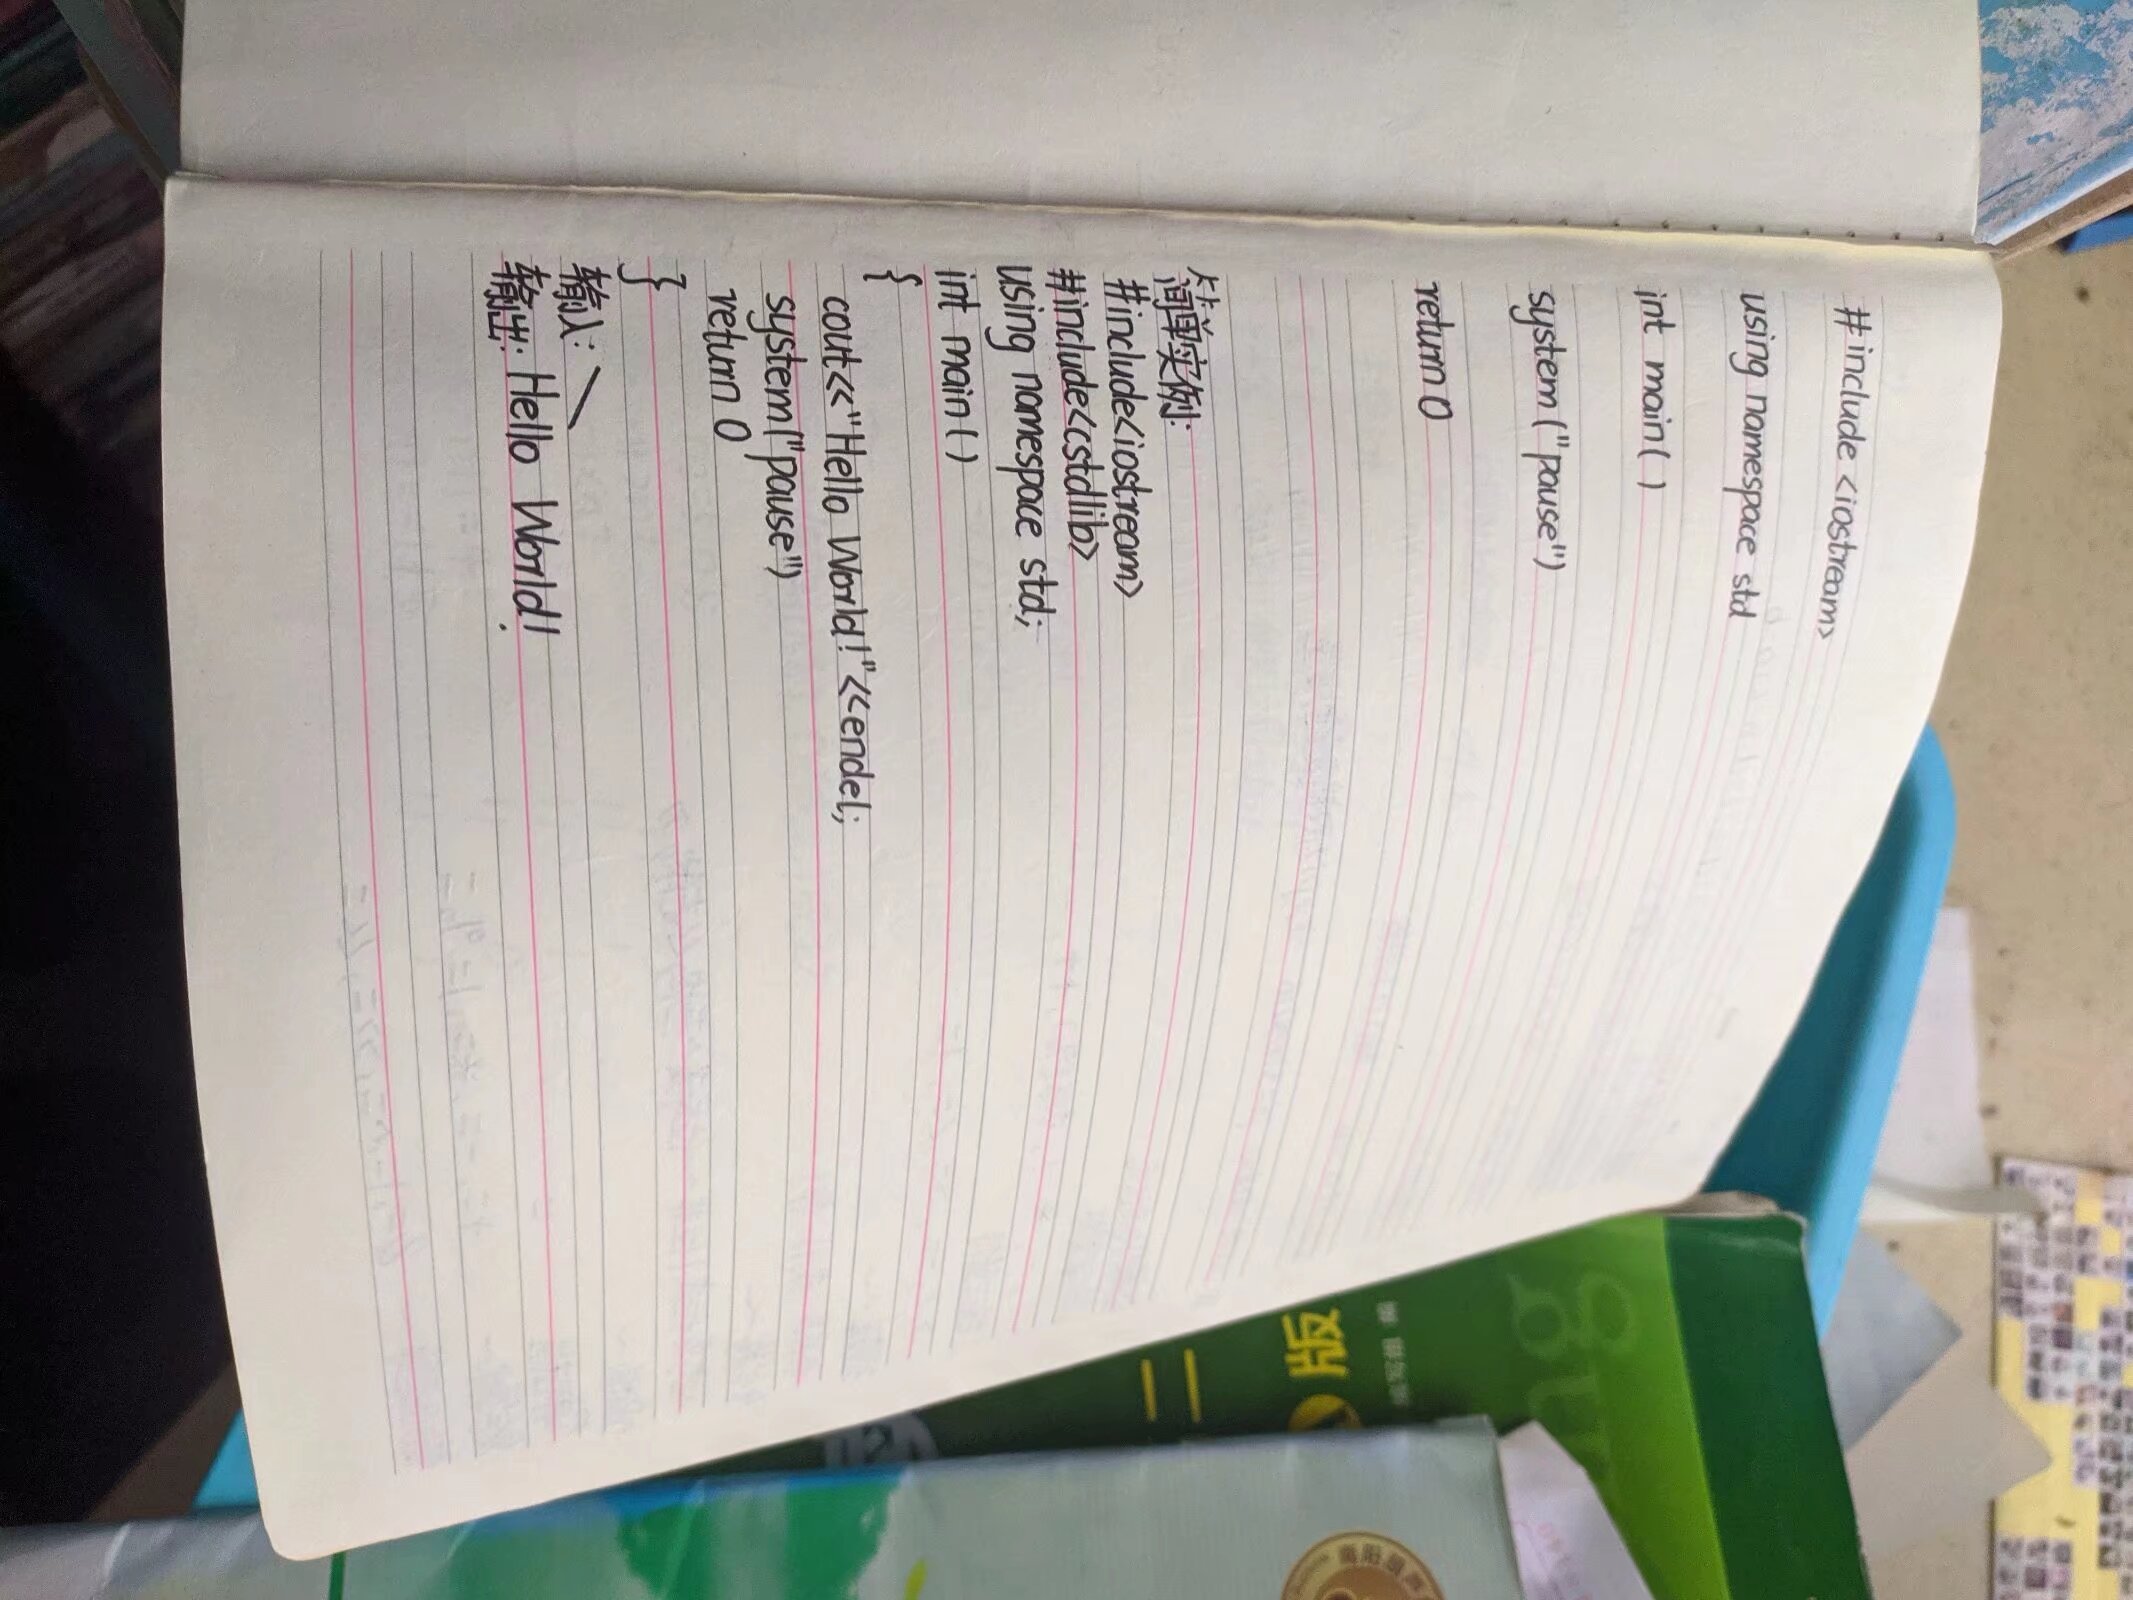 #include <iostream>
using namespace std
int main()
system("pause")
return 0
简单实例:
#include<iostream>
#include<cstdlib>
using namespace std;
int main()
{
cout<<"Hello World!"<<endel;
system("pause")
return 0
}
输入: \
输出: Hello World!
版